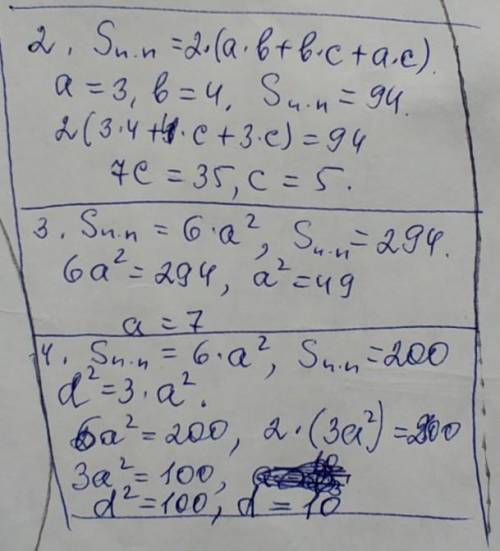 2. Sп.п = 2·(a·b+b·c+a·c).
a = 3, b = 4, Sп.п = 94.
2(3·4+4·c+3·c) = 94
7c = 35, c = 5.
3. Sп.п = 6·a², Sп.п = 294.
6a² = 294, a² = 49
a = 7
4. Sп.п = 6·a², Sп.п = 200
d² = 3·a².
6a² = 200, 2·(3a²) = 200
3a² = 100,
d² = 100, d = 10